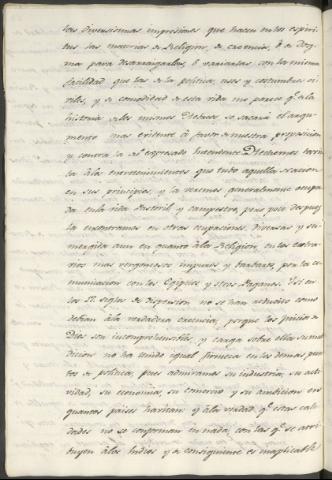 las diversisimas impresiones que hacen en los espiri-
tus las materias de Religion, de creencia, ó de Dog-
ma para desarraigarlas, ó variarlas con la misma
facilidad que las de la politica, usos y costumbres ci-
viles, y de comodidad de esta vida me parece qe. de la
historia de los mismos Hebreos se sacará el argu-
mento mas evidente á favor de nuestra proposicion
y contra la del expresado Intendente. Echemos
la vista á los entretenimientos que tubo aquella Nacion
en sus principios, y la veremos generalmente ocupa-
da en la vida Pastoril, y campestre, pero poco despues
la encontramos en otras ocupaciones diversas y su-
mergida aun en quanto á la Religion, en los extra-
vios mas vergonzosos impuros y barbaros, por la co-
municacion con los Egipcios y otros Paganos. Y si en
los siglos de dispersion no se han reducido como
debian á la verdadera creencia, porque los Juicios de
Dios son incomprensibles, y carga sobre ellos su mal-
dicion no ha tenido igual firmeza en los demas pun-
tos de politica, pues admiramos su industria, su acti-
vidad, su economia, su comercio y su ambicion en
quantos paises habitan y á la verdad, qe. estas cali-
dades no se conforman en nada, con las qe. se atri-
buyen á los Indios y de consiguiente es inaplicable